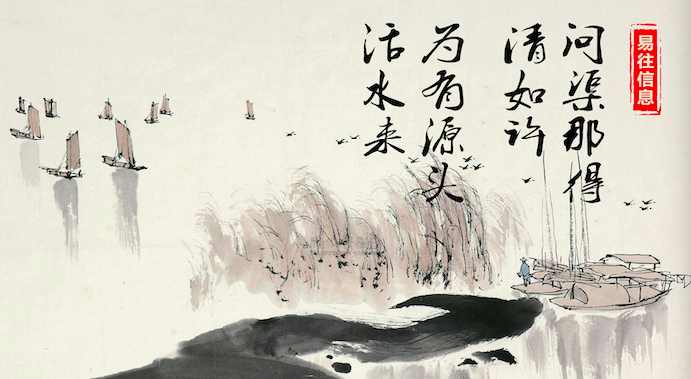 易往信息
问渠那得
清如许
为有源头
活水来